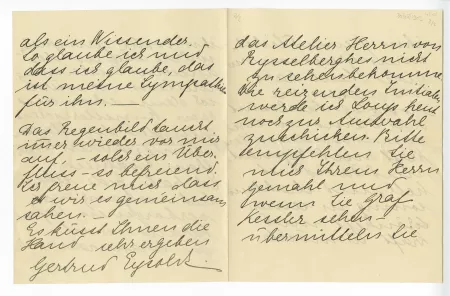 als ein Wissender.
So glaube ich und
dass ich glaube, das
ist meine Sympathie
für ihn. —
Das Regenbild taucht
immer wieder vor mir
auf, – solch ein Über-
fluss – so befreiend.
Ich freue mich, dass
wir es gemeinsam
sahen. –
Es küsst Ihnen die
Hand sehr ergeben
Gertrud Eysoldt.
das Atelier Herrn von
Rysselberghes nicht
zu sehen bekomme
Ihre reizenden Initialen
werde ich Louys heut
noch zur Auswahl
zuschicken. Bitte
empfehlen Sie
mich Ihrem Herrn
Gemahl und
wenn Sie Graf
Kessler sehen –
übermitteln Sie